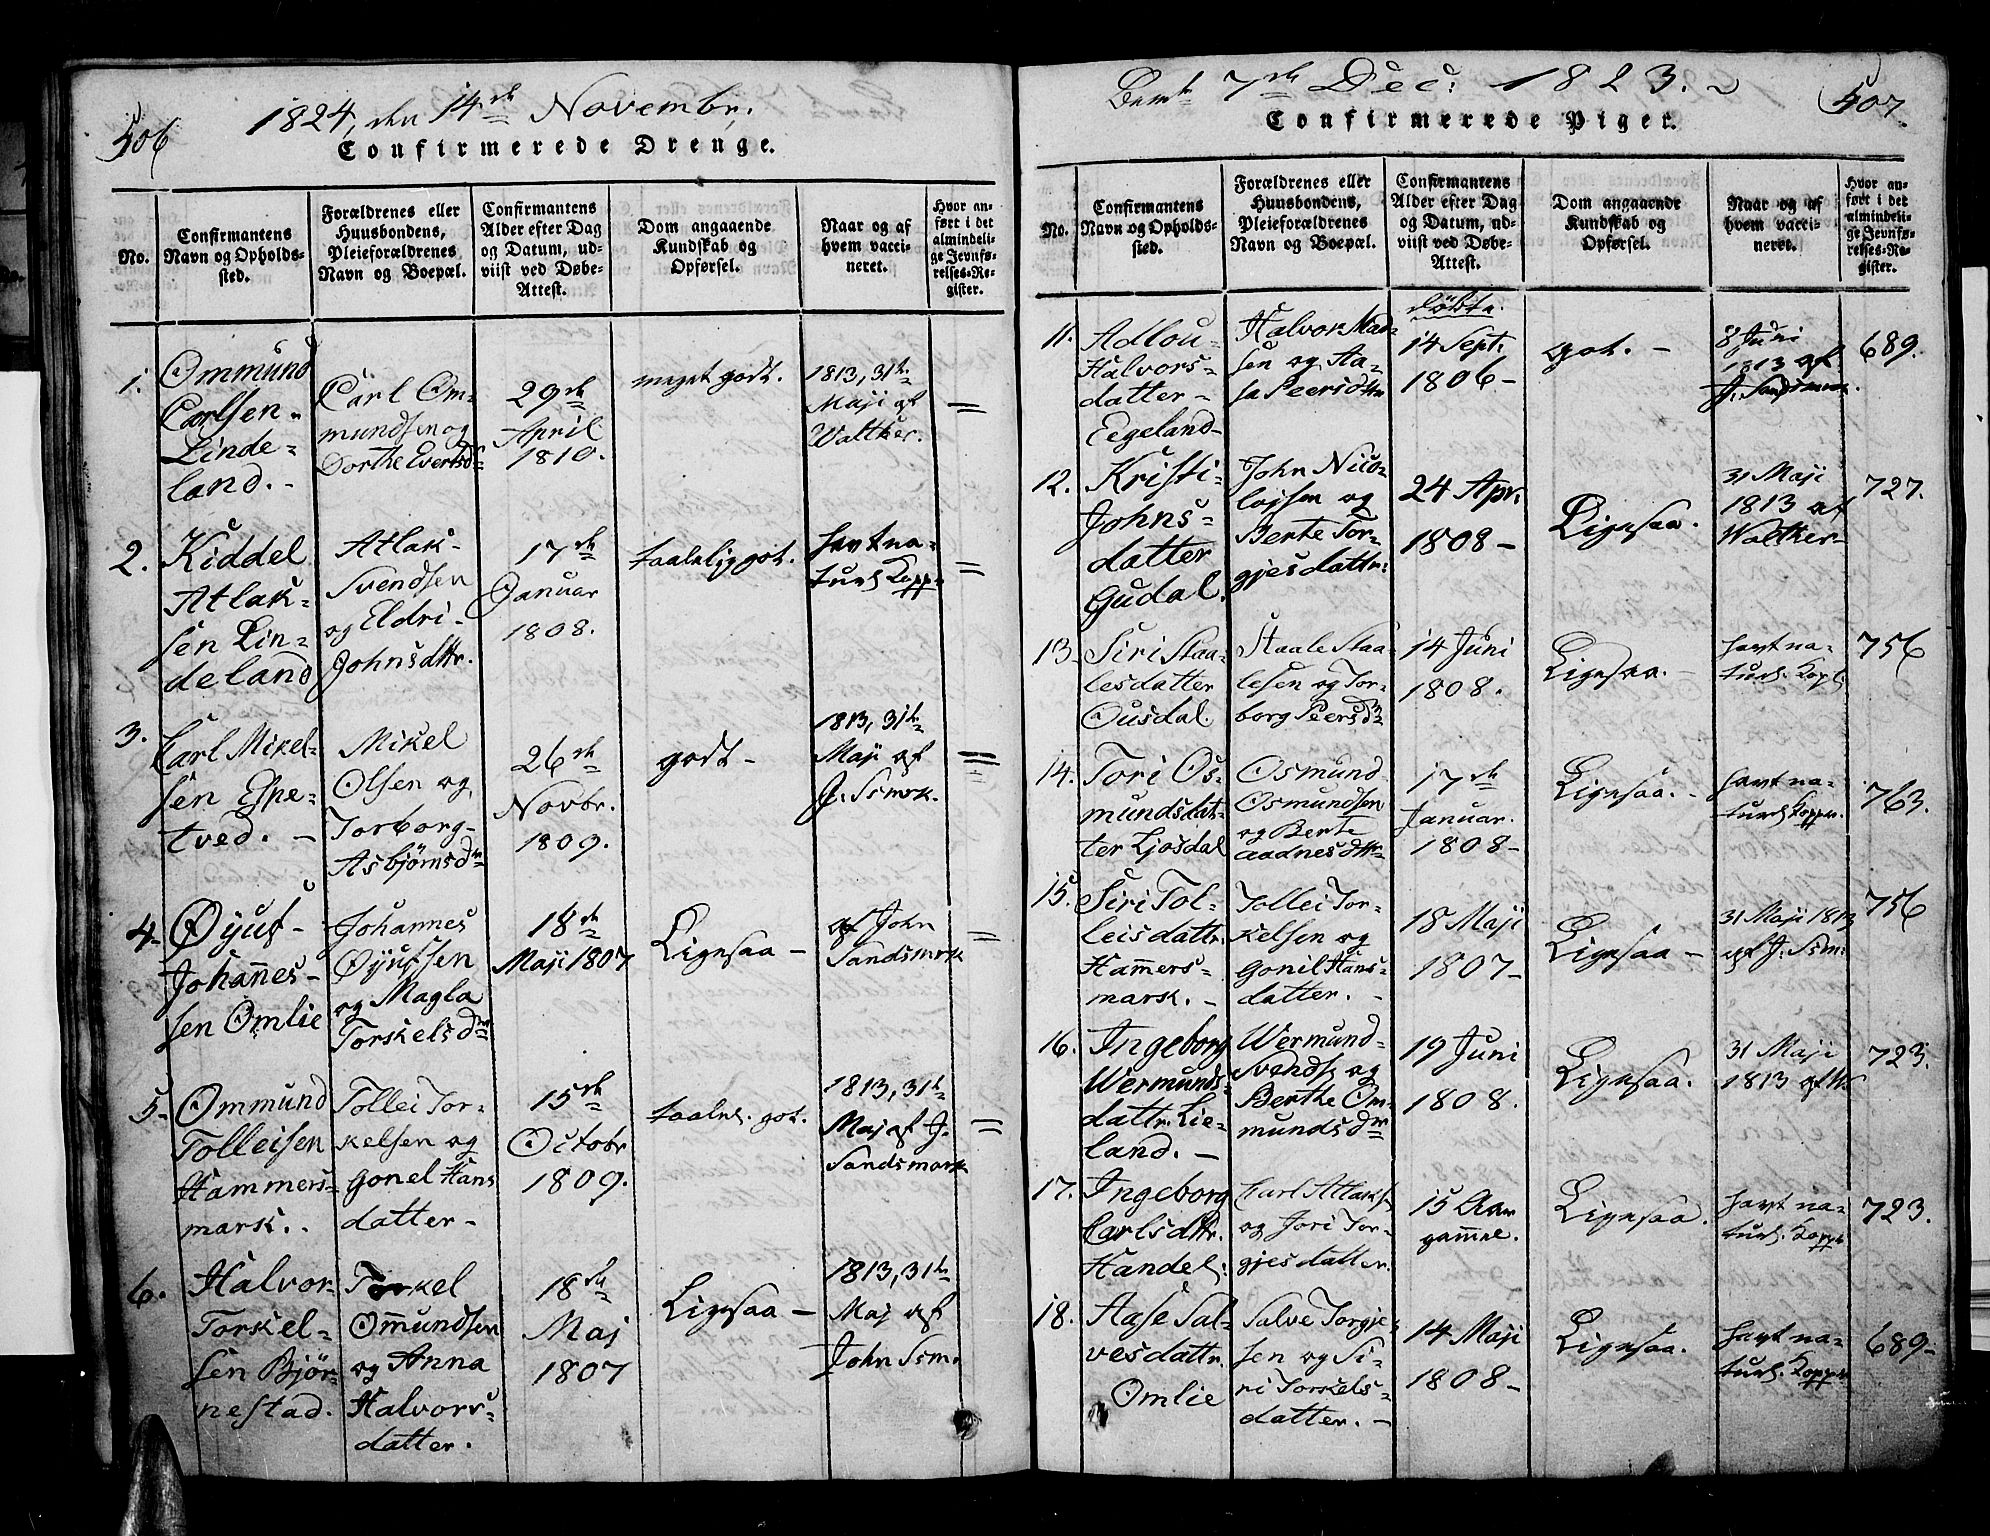 506
1824, den 14de Novembr.
Confirmerede Drenge.
No.
Confirmantens
Navn og Opholds-
sted.
Forældrenes eller
Huusbondens,
Pleieforældrenes
Navn og Boepæl.
Confirmantens
Alder efter Dag
og Datum, ud-
viist ved Døbe-
Attest.
Dom angaaende
Kundskab og
Opførsel.
Naar og af
hvem vacci-
neret.
Hvor an-
ført i det
almindeli-
ge Jevnfø-
relses-Re-
gister.
1.
Ommund
Carlsen
Linde-
land.
Carl Om-
mundsen og
Dorthe Evertsdr
29de
April
1810.
meget godt.
1813, 31te
Maji af
Waltker.
=
2.
Kiddel
Atlak-
sen Lin-
deland
Atlak
Svendsen
og Eldri
Johnsdttr.
17de
Januar
1808.
taalelig got.
havt na-
turl. Kopper
=
3.
Carl Mikel-
sen Espe-
tved. -
Mikel
Olsen og
Torborg
Asbjørnsdr
26de
Novbr.
1809.
godt -
1813, 31te
Maji af
J. Ssmrk.
=
4.
Øyuf
Johannes-
sen Omlie
Johannes
Øyufsen
og Magla
Torskelsdr
18de
Maji 1807
Lignsaa -
af John
Sandsmrk
=
5.
Ommund
Tolleisen
Hammers-
mark.
Tollei Tor-
kelsen og
Gonel Hans
datter -
15de
Octobr
1809.
taalel. got.
1813, 31te
Maj af J.
Sandsmark
=
6.
Halvor
Torskel-
sen Bjør-
nestad.
Torkel
Ommundsen
og Anna
Halvors-
datter.
18de
Maj
1807
Lignsaa -
1813, 31te
Maj af
John Ssm.
507.
7de Dec: 1823.
Confirmerede Piger.
No.
Confirmantens
Navn og Opholds-
sted.
Forældrenes eller
Huusbondens,
Pleieforældrenes
Navn og Boepæl.
Confirmantens
Alder efter Dag
og Datum, ud-
viist ved Døbe-
Attest.
Dom angaaende
Kundskab og
Opførsel.
Naar og af
hvem vacci-
neret.
Hvor an-
ført i det
almindeli-
ge Jevnfø-
relses-Re-
gister.
11.
Adlou
Halvors-
datter -
Eegeland
Halvor Mad-
sen og Aa-
sa Peersdttr
døbte.
14 Sept.
1806 -
got. -
8 Juni
1813 af
J. Sandsmrk.
689.
12.
Kristi
Johns-
datter
Gudal.
John Nico-
lajsen og
Berte Tor-
gjesdattr:
24 Apr.
1808 -
Lignsaa.
31 Maji
1813 af
Waltker
727.
13.
Siri Staa-
lesdatter
Ousdal.
Staale Staa-
lesen og Tor-
borg Peersdr
14 Juni
1808.
Lignsaa. -
havt na-
turl. Kop.
756
14.
Tori Os-
mundsdat-
ter Ljosdal
Osmund
Osmundsen
og Berte
Aadnesdttr
17de
Januar.
1808 -
Lignsaa. -
havt na-
turl. Kopper.
763.
15.
Siri Tol-
leisdattr.
Hamers-
mark. -
Tollei Tor-
kelsen og
Gonil Hans-
datter. -
18 Maji
1807 -
Lignsaa -
31 Maji 1813
af J. Ssm.
756
16.
Ingeborg
Wermunds-
dattr. Lie-
land. -
Wermund
Svends. og
Berthe Om-
mundsdr
19 Juni
1808.
Lignsaa.
31 Maji
1813 af W.
723.
17.
Ingeborg
Carlsdttr.
Handel.
Carl Atlaks.
og Jori Tor-
gjesdatter.
15 Aar
gamel.
Lignsaa.
havt na-
turl. Kopper
723.
18.
Aase Sal-
vesdattr.
Omlie
Salve Torgje-
sen og Si-
ri Torskels-
datter. -
14 Maji
1808 -
Lignsaa.
havt na-
turl. Kopper
689 -